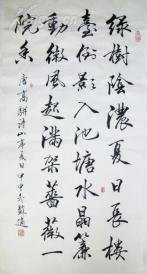 綠樹陰濃夏日長樓
臺倒影入池塘水晶簾
動微風起滿架薔薇一
院香
唐高駢詩山亭夏日甲申冬